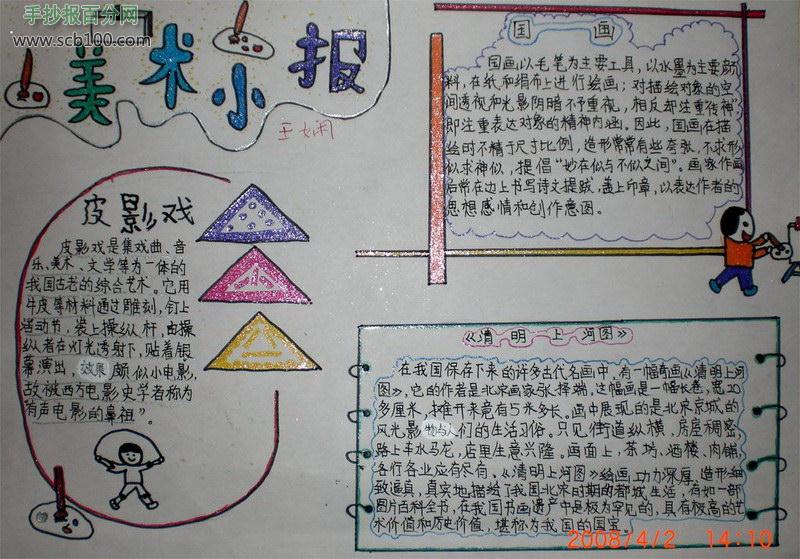 手抄报百分网
www.scb100.com
美术小报
国画
国画以毛笔为主要工具，以水墨为主要颜
料，在纸和绢布上进行绘画；对描绘对象的空
间透视和光影阴暗不予重视，相反却注重传神
即注重表达对象的精神内涵。因此，国画在描
绘时不精于尺寸比例，造形常常有些夸张，不求形
似求神似，提倡“妙在似与不似之间”。画家作画
后常在边上书写诗文提跋，盖上印章，以表达作者的
思想感情和创作意图。
皮影戏
皮影戏是集戏曲、音
乐、美术、文学等为一体的
我国古老的综合艺术。它用
牛皮等材料通过雕刻，钉上
活动节，装上操纵杆，由操
纵者在灯光透射下，贴着银
幕演出，效果颇似小电影，
故被西方电影史学者称为
“有声电影的鼻祖”。
《清明上河图》
在我国保存下来的许多古代名画中，有一幅奇画《清明上河
图》，它的作者是北宋画家张择端，这幅画是一幅长卷，宽20
多厘米，摊开来竟有5米多长。画中展现的是北宋京城的
风光影物与人们的生活习俗。只见街道纵横，房屋稠密，
路上车水马龙，店里生意兴隆。画面上，茶坊、酒楼、肉铺、
各行各业应有尽有。《清明上河图》绘画功力深厚，造形细
致逼真，真实地描绘了我国北宋时期的都城生活，有如一部
图片百科全书，在我国书画遗产中是极为罕见的，具有极高的艺
术价值和历史价值，堪称为我国的国宝。
2008/4/2 14:10